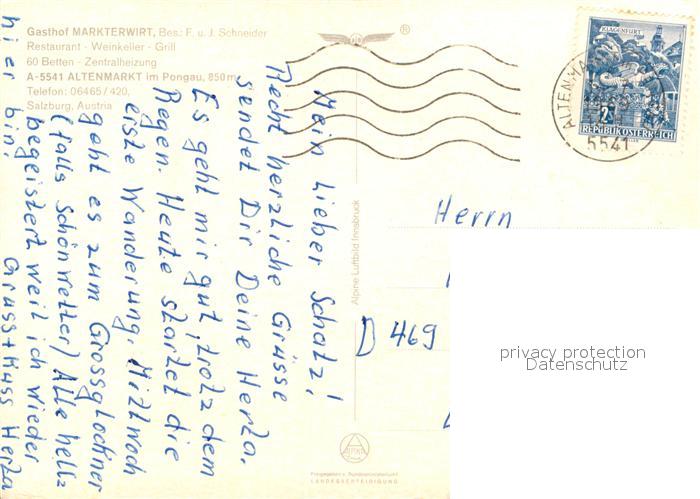 Gasthof MARKTERWIRT, Bes.: F. u. J. Schneider
Restaurant - Weinkeller - Grill
60 Betten - Zentralheizung
A-5541 ALTENMARKT im Pongau, 850m
Telefon: 06465/420,
Salzburg, Austria
Mein Lieber Schatz!
Recht herzliche Grüsse
sendet Dir Deine Herza.
Es geht mir gut, trotz dem
Regen. Heute startet die
erste Wanderung. Mittwoch
geht es zum Grossglockner
(falls Schönwetter) Alle hells
begeistert weil ich wieder
hier bin.
Gruss + Kuss Herza
Alpine Luftbild Innsbruck
KLAGENFURT
2S
REPUBLIK ÖSTERREICH
ALTENMA
5541
Herrn
D 469
ALPINE
Freigegeben v. Bundesministerium f.
LANDESVERTEIDIGUNG
privacy protection
Datenschutz